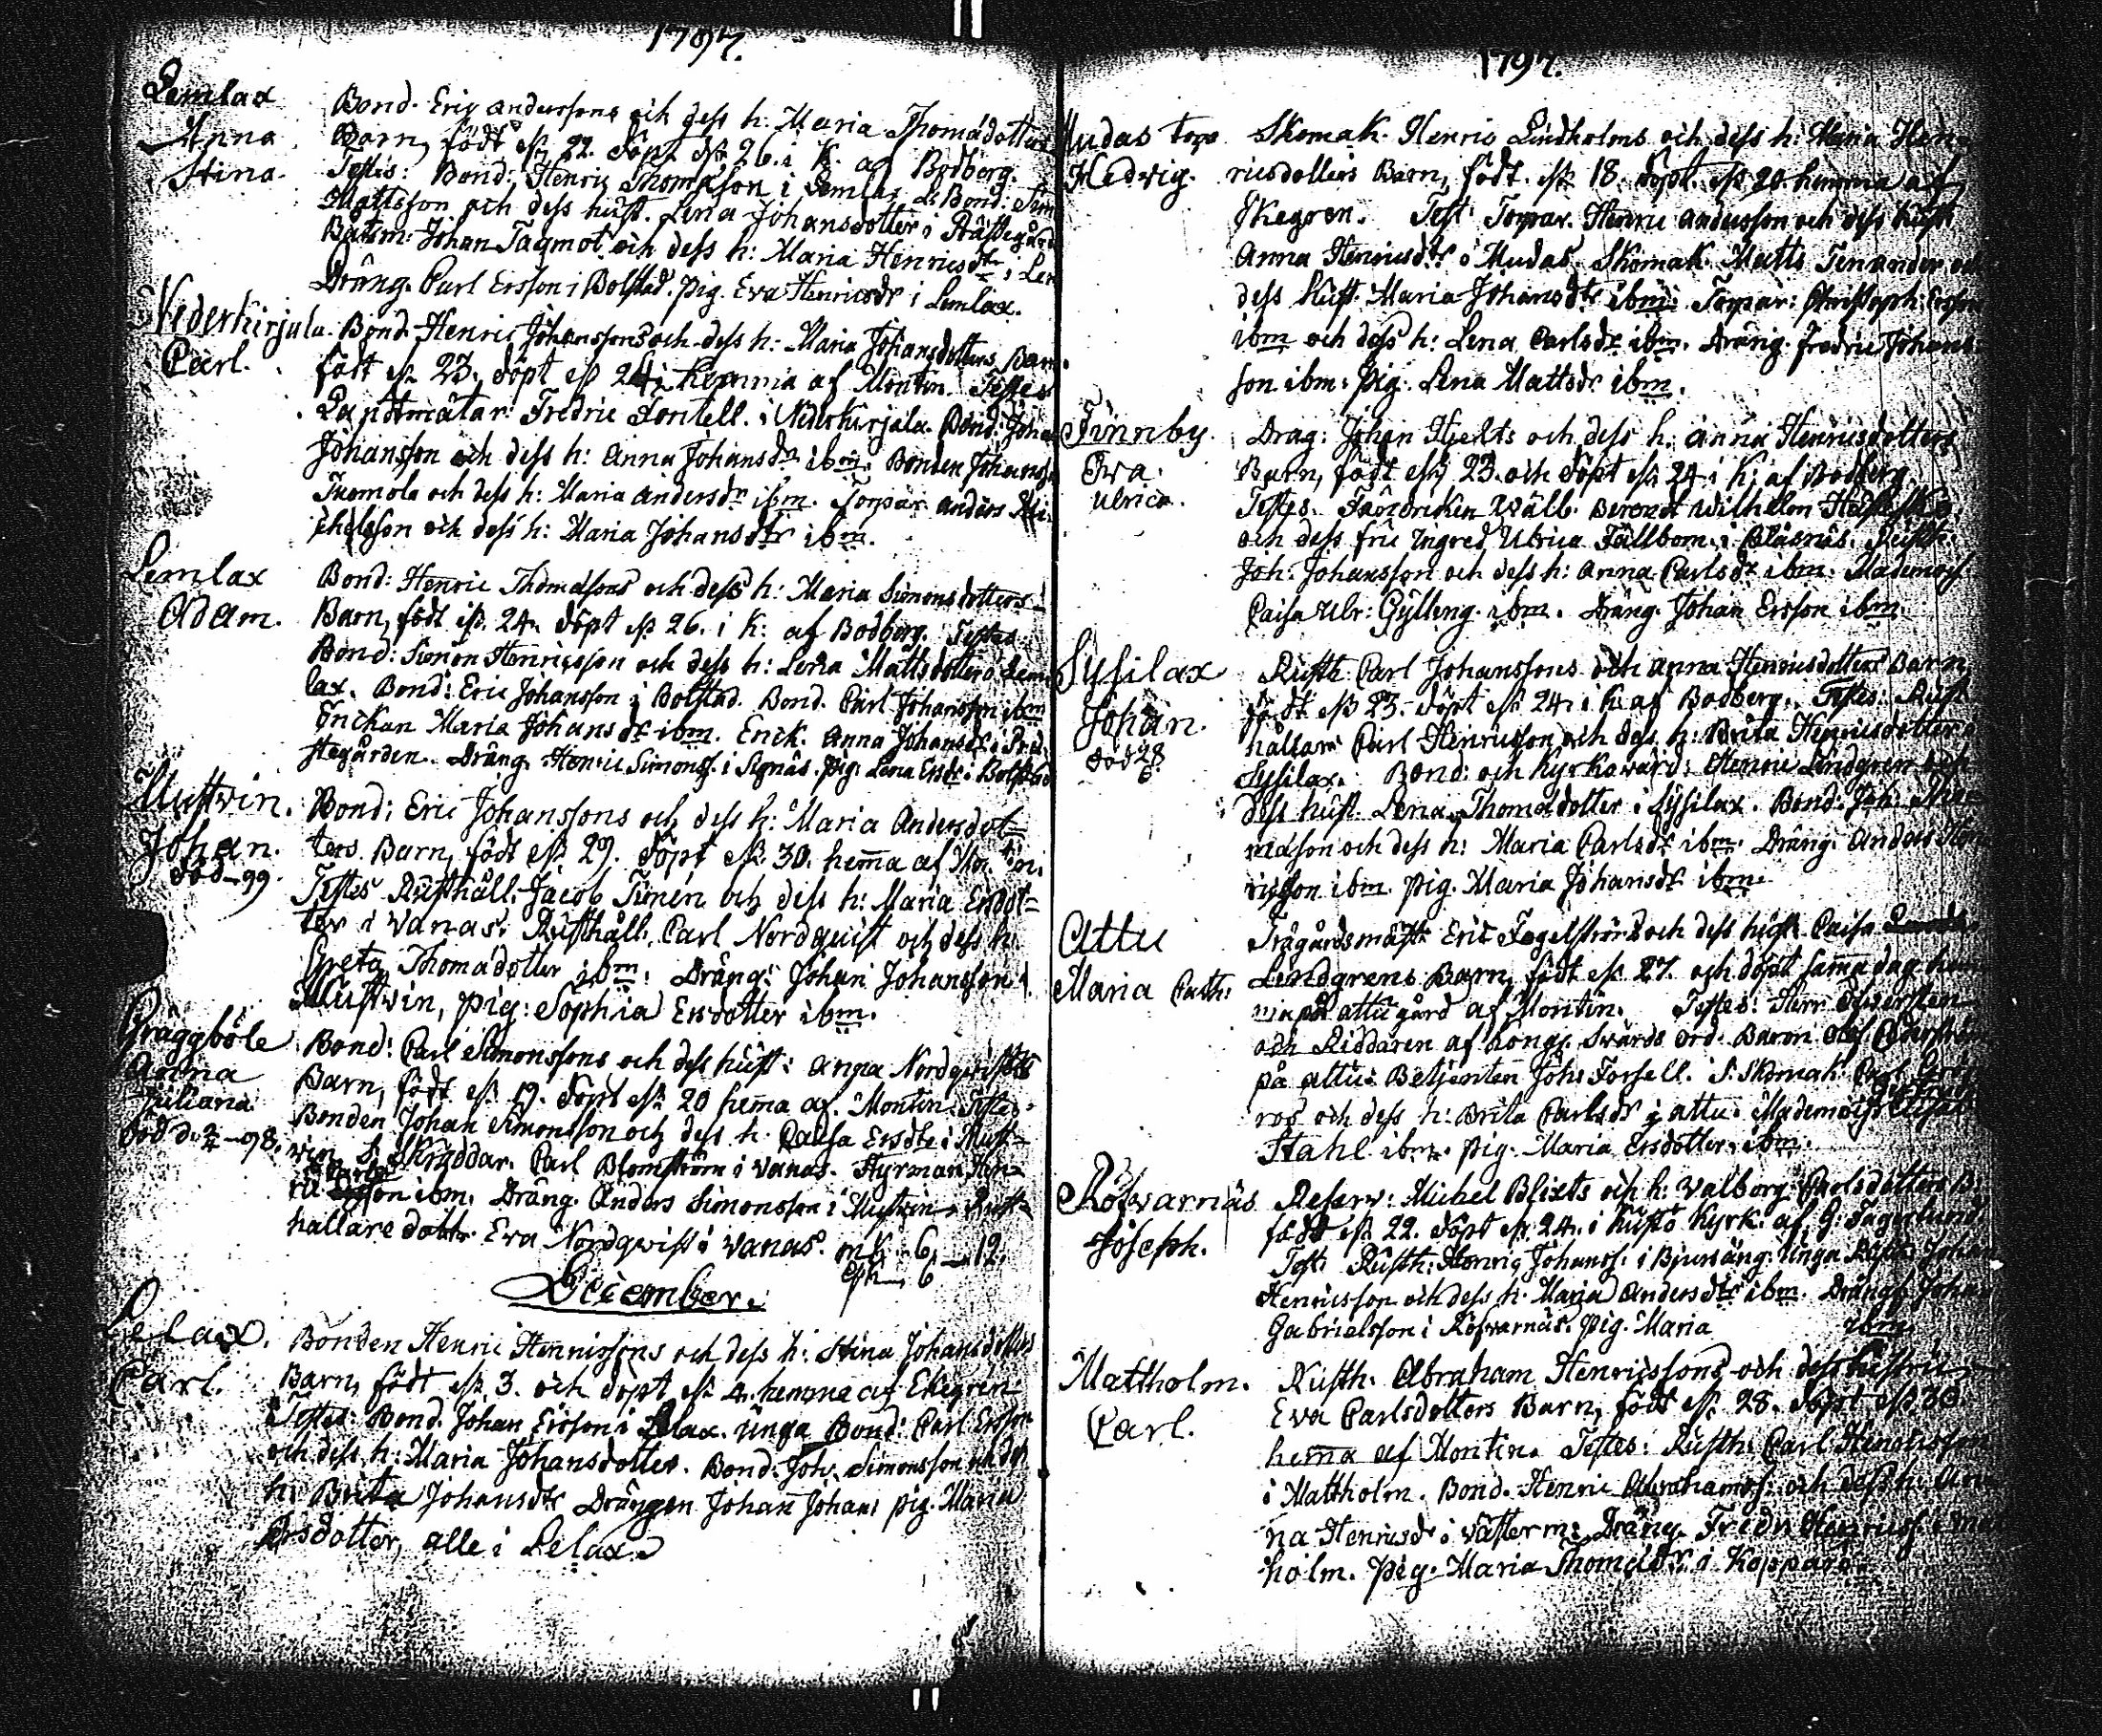 1797.
Lemlax Bond. Eric anderssons och dess h: Maria Thomædotters
Anna Barn, födt d. 22. döpt d. 26. i K. af Bodberg.
Stina Testis: Bond: Henric Thomasson i Lemlax. Bond: Sim
Mattsson och dess hust. Lena Johansdotter i Prästegård
Båtsm: Johan Tagmot och dess h: Maria Henricsdtr i Lem
Dräng. Carl Ersson i Bolstad. pig. Eva Henricsdr i Lemlax.
Nederkirjala. Bond. Henric Johanssons och dess h: Maria Johansdotters Barn
Carl. födt 23. döpt 24 hemma af Montin. Testes
Landtmätar: Fredric Fontell. i Nederkirjala. Bond: Johan
Johansson och dess h: Anna Johansdr ibm. Bonden Johan
Tuomola och dess h: Maria andersdr ibm. Torpar anders Mi
chelsson och dess h: Maria Johansdtr ibm.
Lemlax Bond: Henric Thomassons och dess h: Maria Simonsdotters
Adam. Barn, födt 24. döpt 26. i K: af Bodberg. Testes
Bond: Simon Henricsson och dess h: Lena Mattsdotter i Lem
lax. Bond: Eric Johansson i Bolstad. Bond. Carl Johansson ibm
Enckan Maria Johansdr ibm. Enck. Anna Johansdr i Prä
stegården. Dräng. Henric Simonss. i Signäs. pig. Lena Ersdr i Bolstad
Mustvin. Bond: Eric Johanssons och dess h: Maria Andersdot=
Johan. ters Barn, födt 29. döpt 30. hema af Montin.
död -99. Testes Rusthåll. Jacob Simén och dess h: Maria Ersdot=
ter i Vanas. Rusthåll. Carl Nordquist och dess h:
Greta Thomædotter ibm. Dräng: Johan Johansson i
Mustvin, pig: Sophia Ersdotter ibm.
Gräggböle Bond: Carl Simonssons och dess hust: Anna Nordqvists
Anna Barn, födt 19. döpt 20 hema af Montin. Testes
Juliana. Bonden Johan Simonsson och dess h. Caisa Ersdtr i Must=
död d. -98. vin S. Skräddar. Carl Blomström i Vanas. Styrman Hen
ric Carlsson ibm. Dräng. Anders Simonsson i Mustvin. Rust=
hållaredottr. Eva Nordqvist i Vanas. mk. 6 — 12.
qk — 6
December.
Lelax. Bonden Henric Henricssons och dess h: Stina Johansdotters
Carl. Barn, födt 3. och döpt 4. hemma af Ekegren
Testes: Bond. Johan Ersson i Lelax. Unga Bond: Carl Ersson
och dess h: Maria Johansdotter. Bond. Joh. Simonsson och dess
h: Brita Johansdtr Drängen Johan Johans pig. Maria
Ersdotter, alle i Lelax.
1797.
Mudas torp Skomak. Henric Lindholms och dess h: Maria Hen
Hedvig. ricsdotters Barn, födt. 18. döpt. 20. hemma af
Ekegren. Test: Torpar. Henric andersson och dess hust
Anna Henricsdtr i Mudas. Skomak. Matts Tenander och
dess hust. Maria Johansdtr ibm. Torpar: Christoph: Ersson
ibm och dess h: Lena Carlsdr ibm. Dräng. Fredric Johans
son ibm. pig. Lena Mattsdr ibm.
Finnby. Drag: Johan Hjelts och dess h. anna Henricsdotters
Eva Barn, födt 23. och döpt 24 i K: af Bodberg.
Ulrica. Testes. Fändriken Wälb. Berendt Wilhelm
och dess fru Ingred Ulrica Fällbom. i Bläsnäs. Rusth.
Joh: Johansson och dess h: Anna Carlsdr ibm. Mademois
Caisa Ulr: Gylling. ibm. Dräng. Johan Ersson ibm.
Sysilax Rusth Carl Johanssons och anna Henricsdotters Barn
Johan. födt 23. döpt 24 i K: af Bodberg. Testes: Rust
död 98 hållarn Carl Henricsson och dess h: Brita Henricsdotter i
Sysilax. Bond: och Kyrkovärd: Henric Lindgren och
dess hust. Lena Thomædotter i Sysilax. Bond. Joh. Tho
mæson och dess h: Maria Carlsdr ibm. Dräng. Anders Hen
ricsson ibm. pig. Maria Johansdr ibm.
Attu Trägårdsmäst. Eric Fogelströms och dess hust. Caisa
Maria Cath: Lindgrens Barn, födt 27. och döpt sama dag hem
ma på attu gård af Montin. Testes: Herr Öfwersten
och Riddaren af Kongl. Swärds ord. Baron Olof Cederström
på attu. Betjenten Joh: Forsell. S. Skomak. Carl Grön
ros och dess h: Brita Carlsdr i attu. Mademois
Stahl ibm. pig. Maria Ersdotter ibm.
Röfvarnäs Reserv: Michel Blixts och h: Valborg Carlsdotters B.
Joseph. födt 22. döpt 24. i Kustö Kyrk: af G: Fagerlund.
Test: Rusth: Henric Johanss: i Bjursäng. Unga Rusth: Johan
Henricsson och dess h. Maria Andersdtr ibm. Dräng: Johan
Gabrielsson i Röfvarnäs. pig. Maria ibm.
Mattholm. Rusth. Abraham Henricssons och dess hustru
Carl. Eva Carlsdotters Barn, födt 28. döpt 30.
hema af Montin. Testes: Rusth: Carl Henricsson
i Mattholm. Bond. Henric Abrahamss: och dess h: An
na Henricsdr i Vätterm: Dräng. Fredr. Henricss. i Mat
holm. pig. Maria Thomædr. i Kopparö.